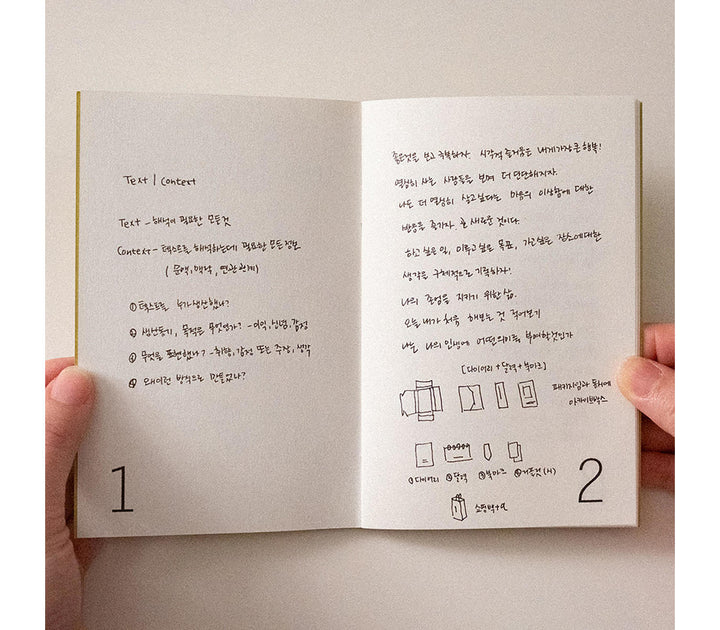 Text | Context
Text - 해석이 필요한 모든것
Context - 텍스트를 해석하는데 필요한 모든정보
( 문액, 맥락, 연관관계 )
① 텍스트를 누가 생산했나?
② 생산동기, 목적은 무엇인가? - 이익, 신념, 감정
③ 무엇을 표현했나? - 취향, 감정 또는 주장, 생각
④ 왜 이런 방식으로 만들었나?
1
좋은것을 보고 극복하자. 시각적 즐거움은 내게 가장 큰 행복!
열심히 사는 사람들을 보며 더 단단해지자.
나는 더 열심히 살고싶다는 마음의 이상함에 대한
방황을 즐기자. 늘 새로울 것이다.
하고싶은 일, 이루고싶은 목표, 가고싶은 장소에대한
생각을 구체적으로 기록하자!
나의 존엄을 지키기 위한 삶.
오늘 내가 처음 해보는 것 적어보기
나는 나의 인생에 어떤 의미를 부여할것인가
[ 다이어리 + 달력 + 북마크 ]
패키지임과 동시에
아카이브박스
① 다이어리 ② 달력 ③ 북마크 ④ (시)
쇼핑백
2